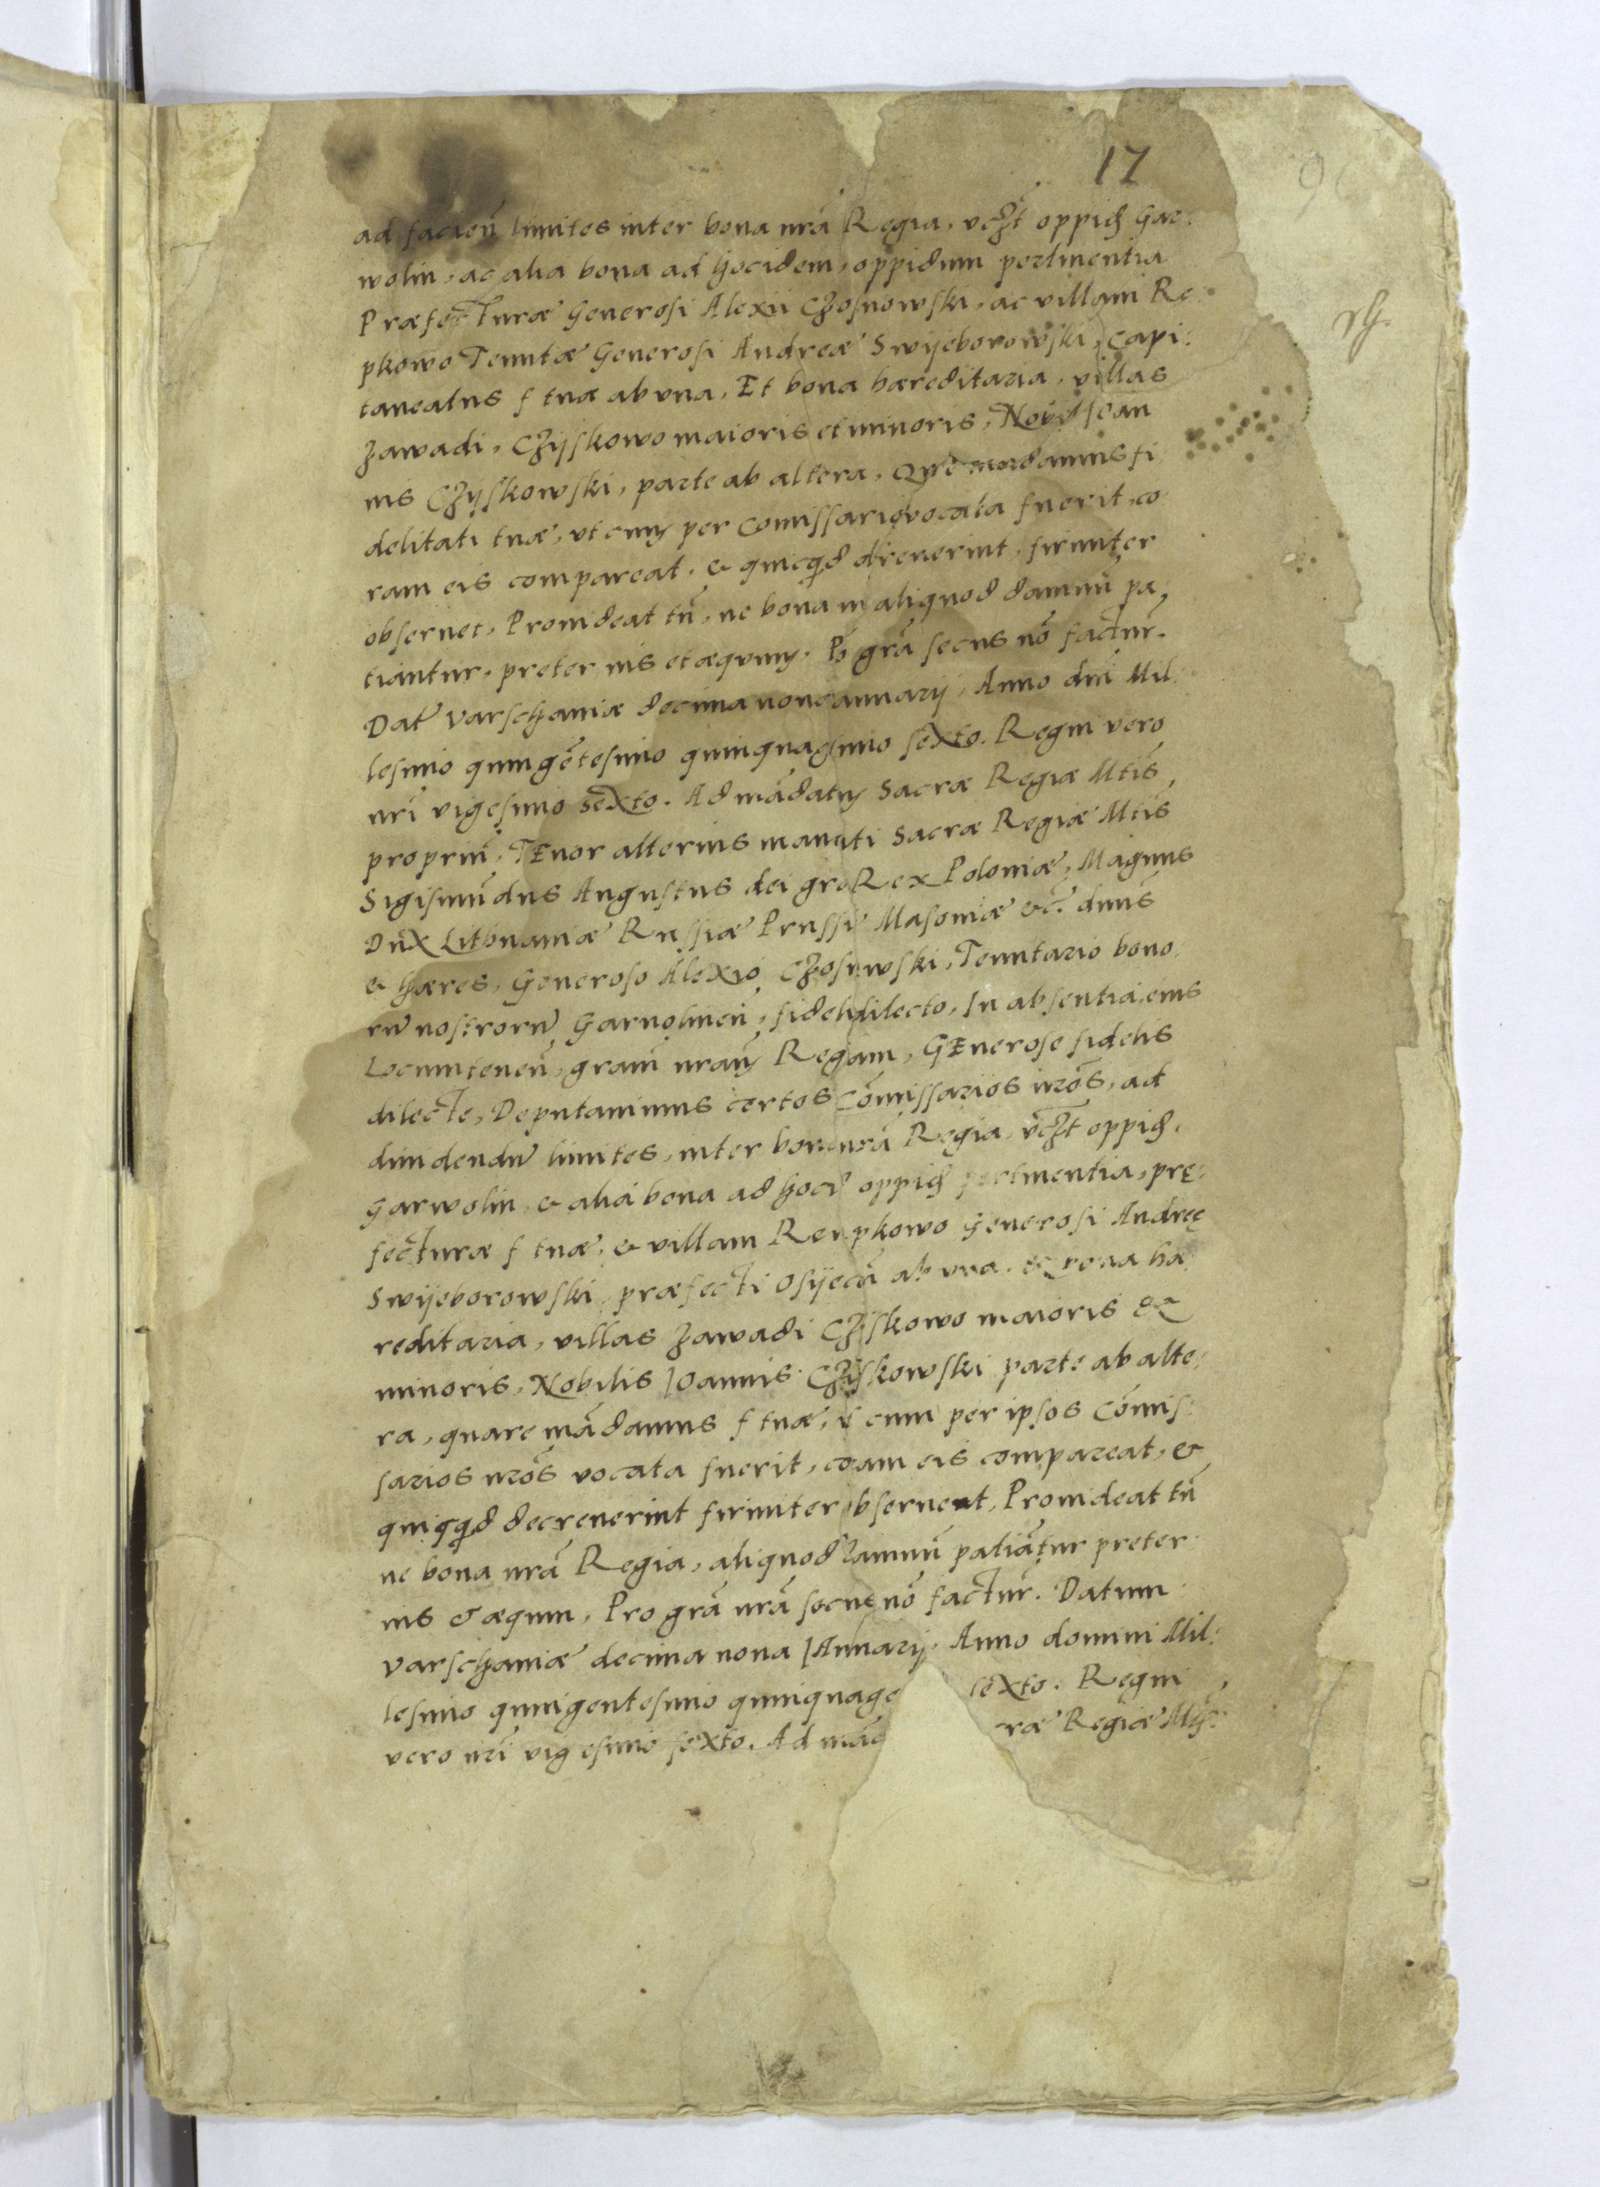 17
ad facien̄ limites inter bona nr̄a Regia, vcz̄t oppid̄ Gar:
wolin, ac alia bona ad hocidem, oppidum pertinentia
Præfecturæ Generosi Alexii Chosnowski, ac villam Re
pkowo Tenutæ Generosi Andreæ Swijeborowski, Capi:
taneatus f tuæ ab vna, Et bona hæreditaria, villas
Zawadi, Czijskowo maioris et minoris, Nob Ioan
nis Czijskowski, parte ab altera, mandamus fi
delitati tuæ, vt cum per Comissario vocata fuerit, co
ram eis compareat, & quicqd firmiter
obseruet, Prouideat tn̄, ne bona in aliquod damnū pa,
tiantur, preter ius et æquum, P gr̄a secus nō factur̄.
Dat Varschauiæ decima non anuarij, Anno dni Mil:
lesimo quingētesimo quinquagesimo sexto. Regni vero
nr̄i vigesimo sexto. Ad mādatum Sacræ Regiæ Mtis,
propriū, TEnor alterius mandati Sacræ Regiæ Mtis
Sigismūdus Augustus dei gra Rex Poloniæ, Magnus
Dux Lithuaniæ Russiæ Prussiæ Masouiæ &c̄ dnus
& hæres, Generoso Alexio Chosnwski, Tenutario bono
rū nostrorū Garuolinen̄, fideli dilecto, In absentia, eius
Locumtenen̄, gram̄ nram Regiam, GEnerose fidelis
dilecte, Deputauimus certos Cōmissarios nros̄, ad
diuidendū limites, inter bona nr̄a Regia, vcz̄t oppid̄,
Garwolin, & alia bona ad hocd oppid̄ pertinentia, prę:
fecturæ f tuæ, & villam Repkowo Generosi Andreę
Swijeborowski, præfecti Osijecn̄ ab vna, & bona hæ
reditaria, villas Zawadi Czijskowo maioris &
minoris, Nobilis Ioannis Czijskowski parte ab alte:
ra, quare mādamus f tuæ, v cum per ipsos Cōmis:
sarios nros̄ vocata fuerit, coram eis compareat, &
quicqd decreuerint firmiter obseruent, Prouideat tn̄
ne bona nr̄a Regia, aliquod damnū patiātur preter
ius & æquum, Pro gr̄a nr̄a secus nō factur̄. Datum
Varschauiæ decima nona IAnuarij, Anno domini Mil:
lesimo quingentesimo quinquage sexto. Regni
vero nr̄i vigesimo sexto. Ad mād ræ Regiæ Mtis: